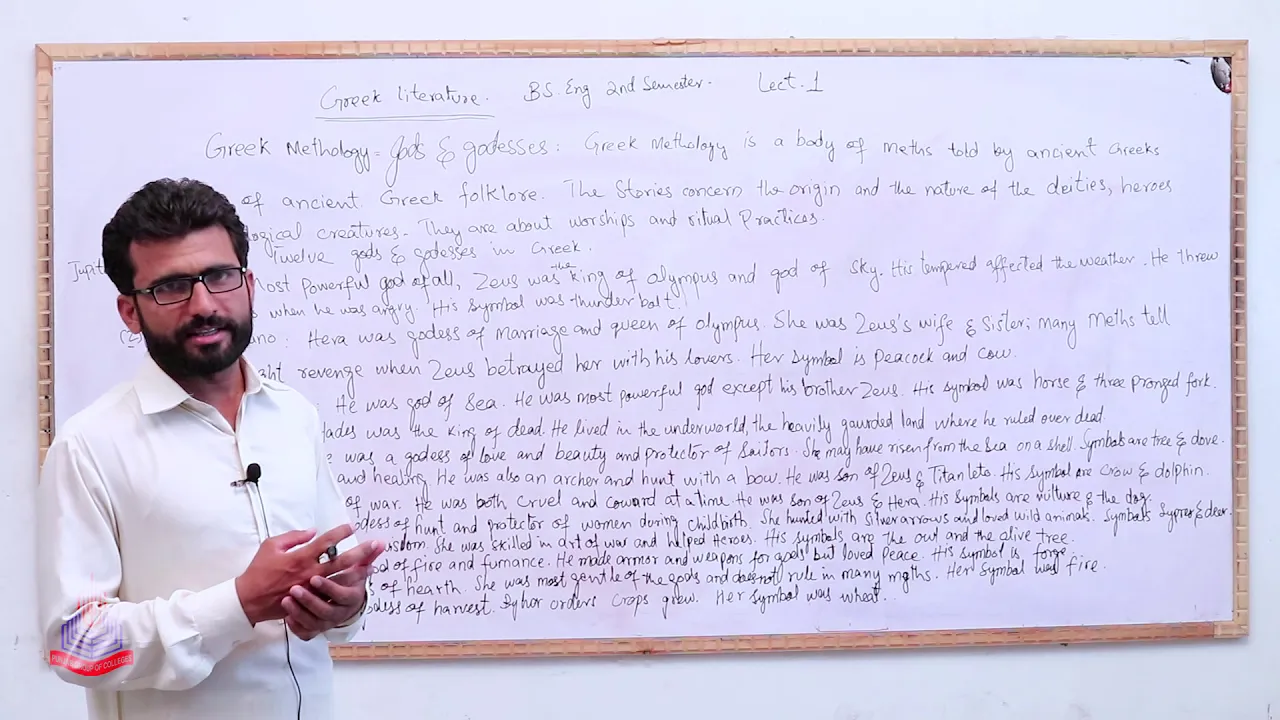 Greek Literature. BS. Eng 2nd Semester. Lect. 1
Greek Methology = gods & godesses: Greek Methology is a body of meths told by ancient Greeks
of ancient Greek folklore. The Stories concern the origin and the nature of the deities, heroes
logical creatures. They are about worships and ritual Practices.
Twelve gods & godesses in Greek.
Jupit
most powerful god of all, Zeus was the king of olympus and god of sky. His tempered affected the weather. He threw
when he was angry. His symbol was thunder bolt.
(2) uno: Hera was godess of marriage and queen of olympus. She was Zeus's wife & Sister; many Meths tell
ght revenge when Zeus betrayed her with his lovers. Her symbol is peacock and cow.
He was god of sea. He was most powerful god except his brother Zeus. His symbol was horse & three pronged fork.
Hades was the king of dead. He lived in the underworld, the heavily gaurded land where he ruled over dead.
was a godess of love and beauty and protector of sailors. She may have risen from the sea on a shell. Symbols are tree & dove.
and healing. He was also an archer and hunt with a bow. He was son of Zeus & Titan leto. His symbol are Crow & dolphin.
of war. He was both Cruel and coward at a time. He was son of Zeus & Hera. His symbols are vulture & the dog.
odess of hunt and protector of women during childbirth. She hunted with silver arrows and loved wild animals. Symbols Sypres & dear.
wisdom. She was skilled in art of war and helped Heroes. His symbols are the owl and the olive tree.
od of fire and furnance. He made armor and weapons for gods but loved peace. His symbol is forge.
s of hearth. She was most gentle of the gods and does not rule in many myths. Her Symbol was fire.
odess of harvest. orders Crops grew. Her symbol was wheat.
PUNJAB GROUP OF COLLEGES